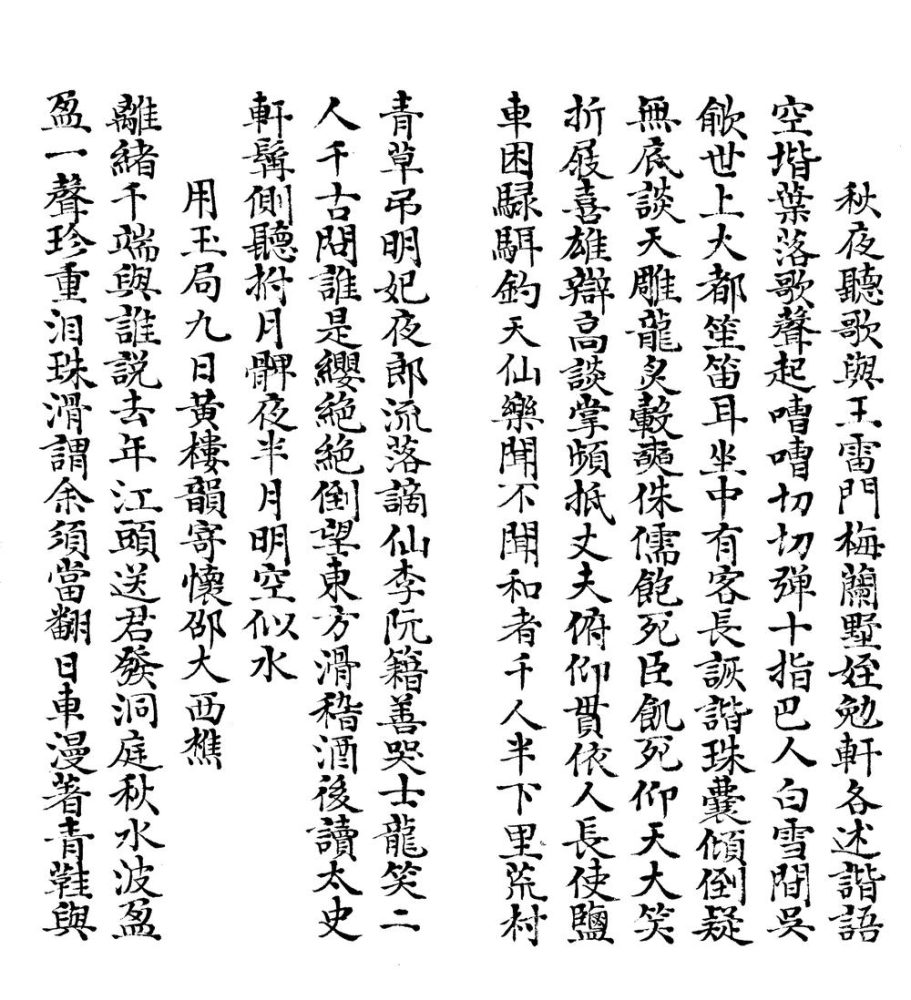 秋夜聽歌與王雷門梅蘭墅姪勉軒各述諧語
空堦葉落歌聲起嘈嘈切切弹十指巴人白雪間吳
歈世上大都笙笛耳坐中有客長詼諧珠囊傾倒疑
無底談天雕龍炙轂奭侏儒飽死臣飢死仰天大笑
折屐喜雄辯高談掌頻抵丈夫俯仰貫依人長使鹽
車困騄駬鈞天仙樂聞不聞和者千人半下里荒村
青草弔明妃夜郎流落謫仙李阮籍善哭士龍笑二
人千古問誰是纓絕絕倒望東方滑稽酒後讀太史
軒髯側聽拊月髀夜半月明空似水
用玉局九日黃樓韻寄懷邵大西樵
離緒千端與誰説去年江頭送君發洞庭秋水波盈
盈一聲珍重泪珠滑謂余須當翻日車漫著青鞋與